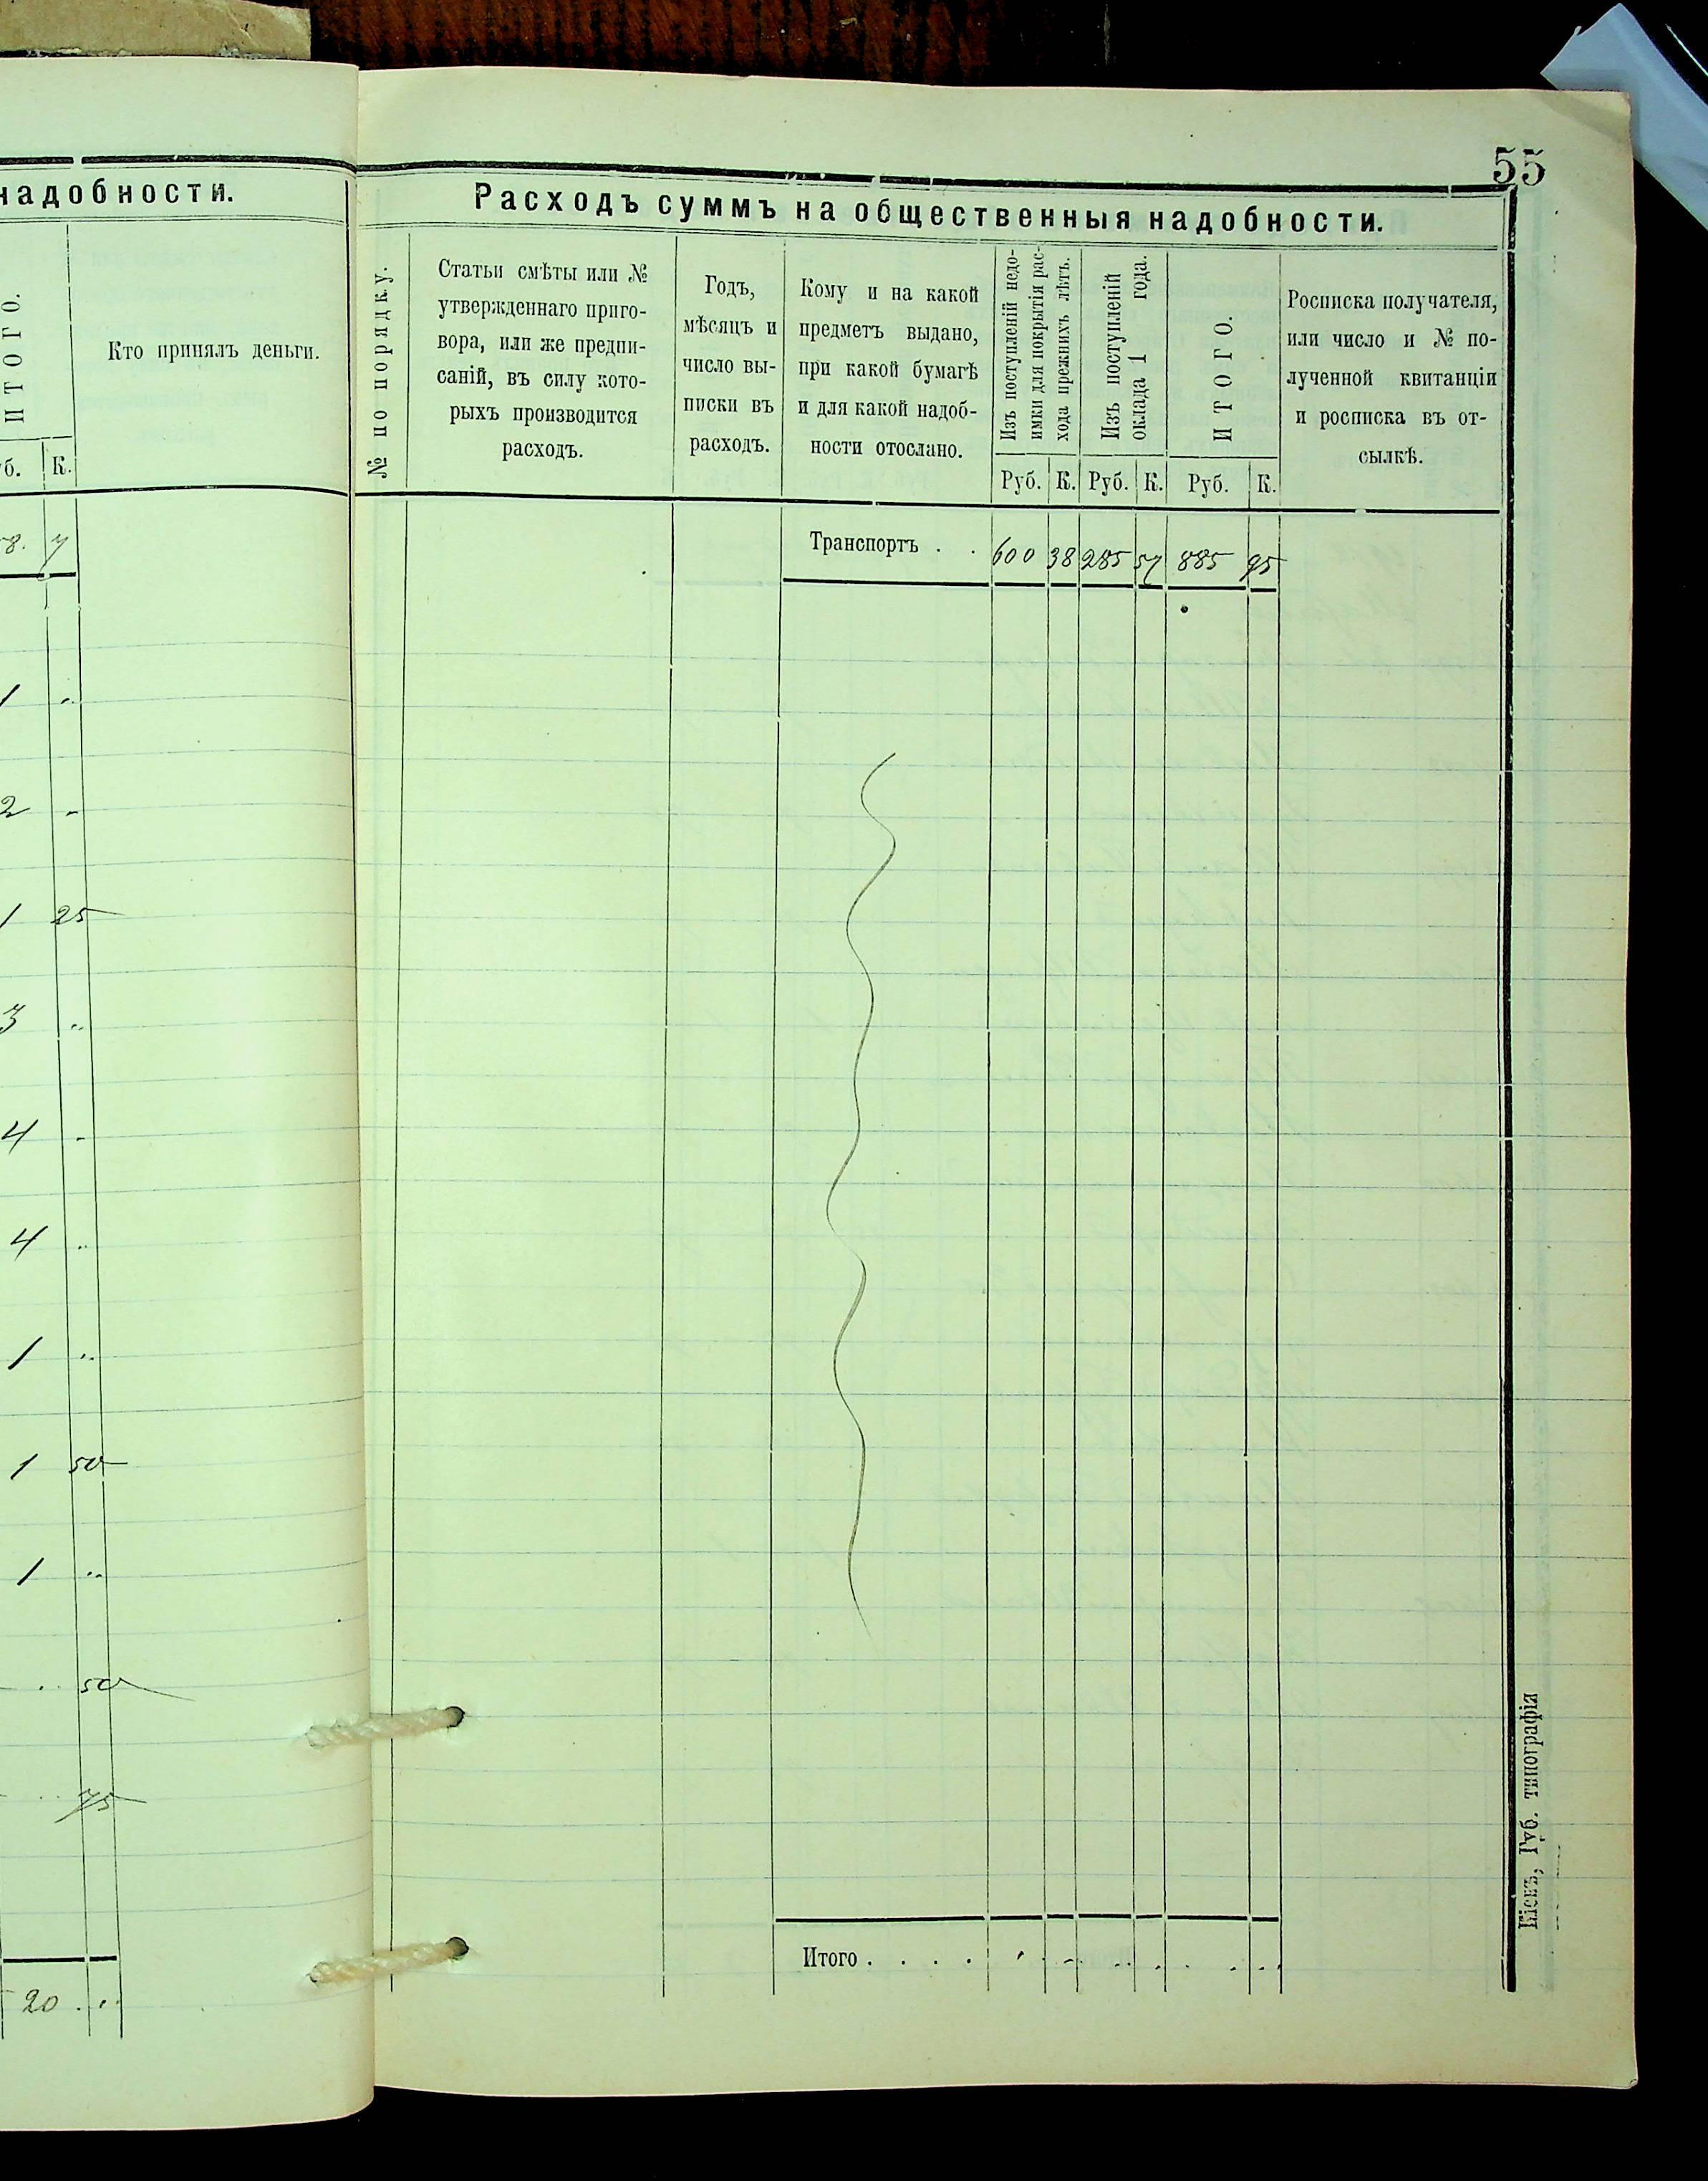 55
надобности.
ИТОГО.
Кто принялъ деньги.
б. К.
8. 7
1 ..
2 -
1 25
3 ..
4 -
4 ..
1 ..
1 50
1 ..
50
75
20 ..
Расходъ суммъ на общественныя надобности.
№ по порядку.
Статьи смѣты или №
утвержденнаго приго-
вора, или же предпи-
саній, въ силу кото-
рыхъ производится
расходъ.
Годъ,
мѣсяцъ и
число вы-
писки въ
расходъ.
Кому и на какой
предметъ выдано,
при какой бумагѣ
и для какой надоб-
ности отослано.
Изъ поступленій недо-
имки для покрытія рас-
хода прежнихъ лѣтъ.
Изъ поступленій
оклада 1 года.
ИТОГО.
Росписка получателя,
или число и № по-
лученной квитанціи
и росписка въ от-
сылкѣ.
Руб. К. Руб. К. Руб. К.
Транспортъ . . 600 38 285 57 885 95
Итого . . . .
Кіевъ, Губ. типографія